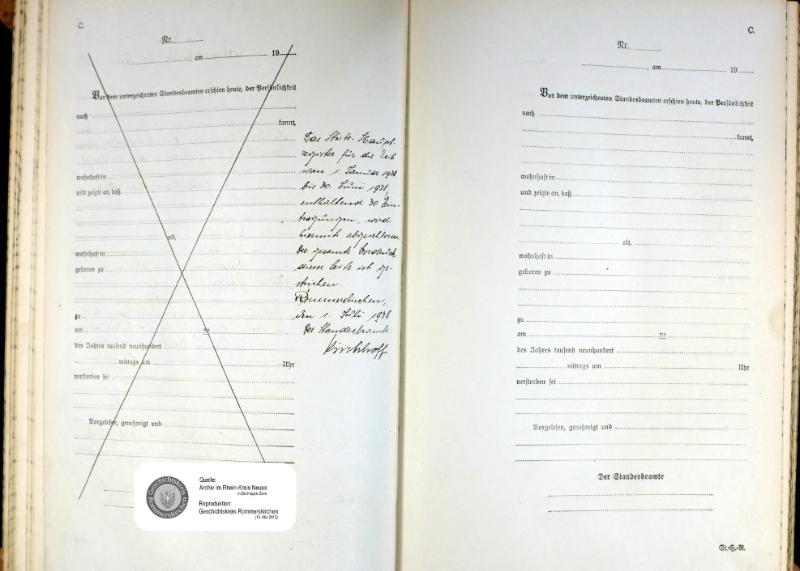 C.
Nr.
am 19
Vor dem unterzeichneten Standesbeamten erschien heute, der Persönlichkeit
nach
kannt,
wohnhaft in
und zeigte an, daß
alt,
wohnhaft in
geboren zu
zu
am
des Jahres tausend neunhundert
mittags um Uhr
verstorben sei
Vorgelesen, genehmigt und
Das Sterbe-Haupt-
register für die Zeit
vom 1. Januar 1938
bis 30. Juni 1938,
enthaltend 30 Ein-
tragungen, wird
hiermit abgeschlossen
Der gesamte Vordruck
dieser Seite ist ge-
strichen
Rommerskirchen,
den 1. Juli 1938
Der Standesbeamte
Kirchhoff
Quelle:
Archiv im Rhein-Kreis Neuss
in Dormagen-Zons
Reproduktion:
Geschichtskreis Rommerskirchen
C.
Nr.
am 19
Vor dem unterzeichneten Standesbeamten erschien heute, der Persönlichkeit
nach
kannt,
wohnhaft in
und zeigte an, daß
alt,
wohnhaft in
geboren zu
zu
am
des Jahres tausend neunhundert
mittags um Uhr
verstorben sei
Vorgelesen, genehmigt und
Der Standesbeamte
St.-H.-R.